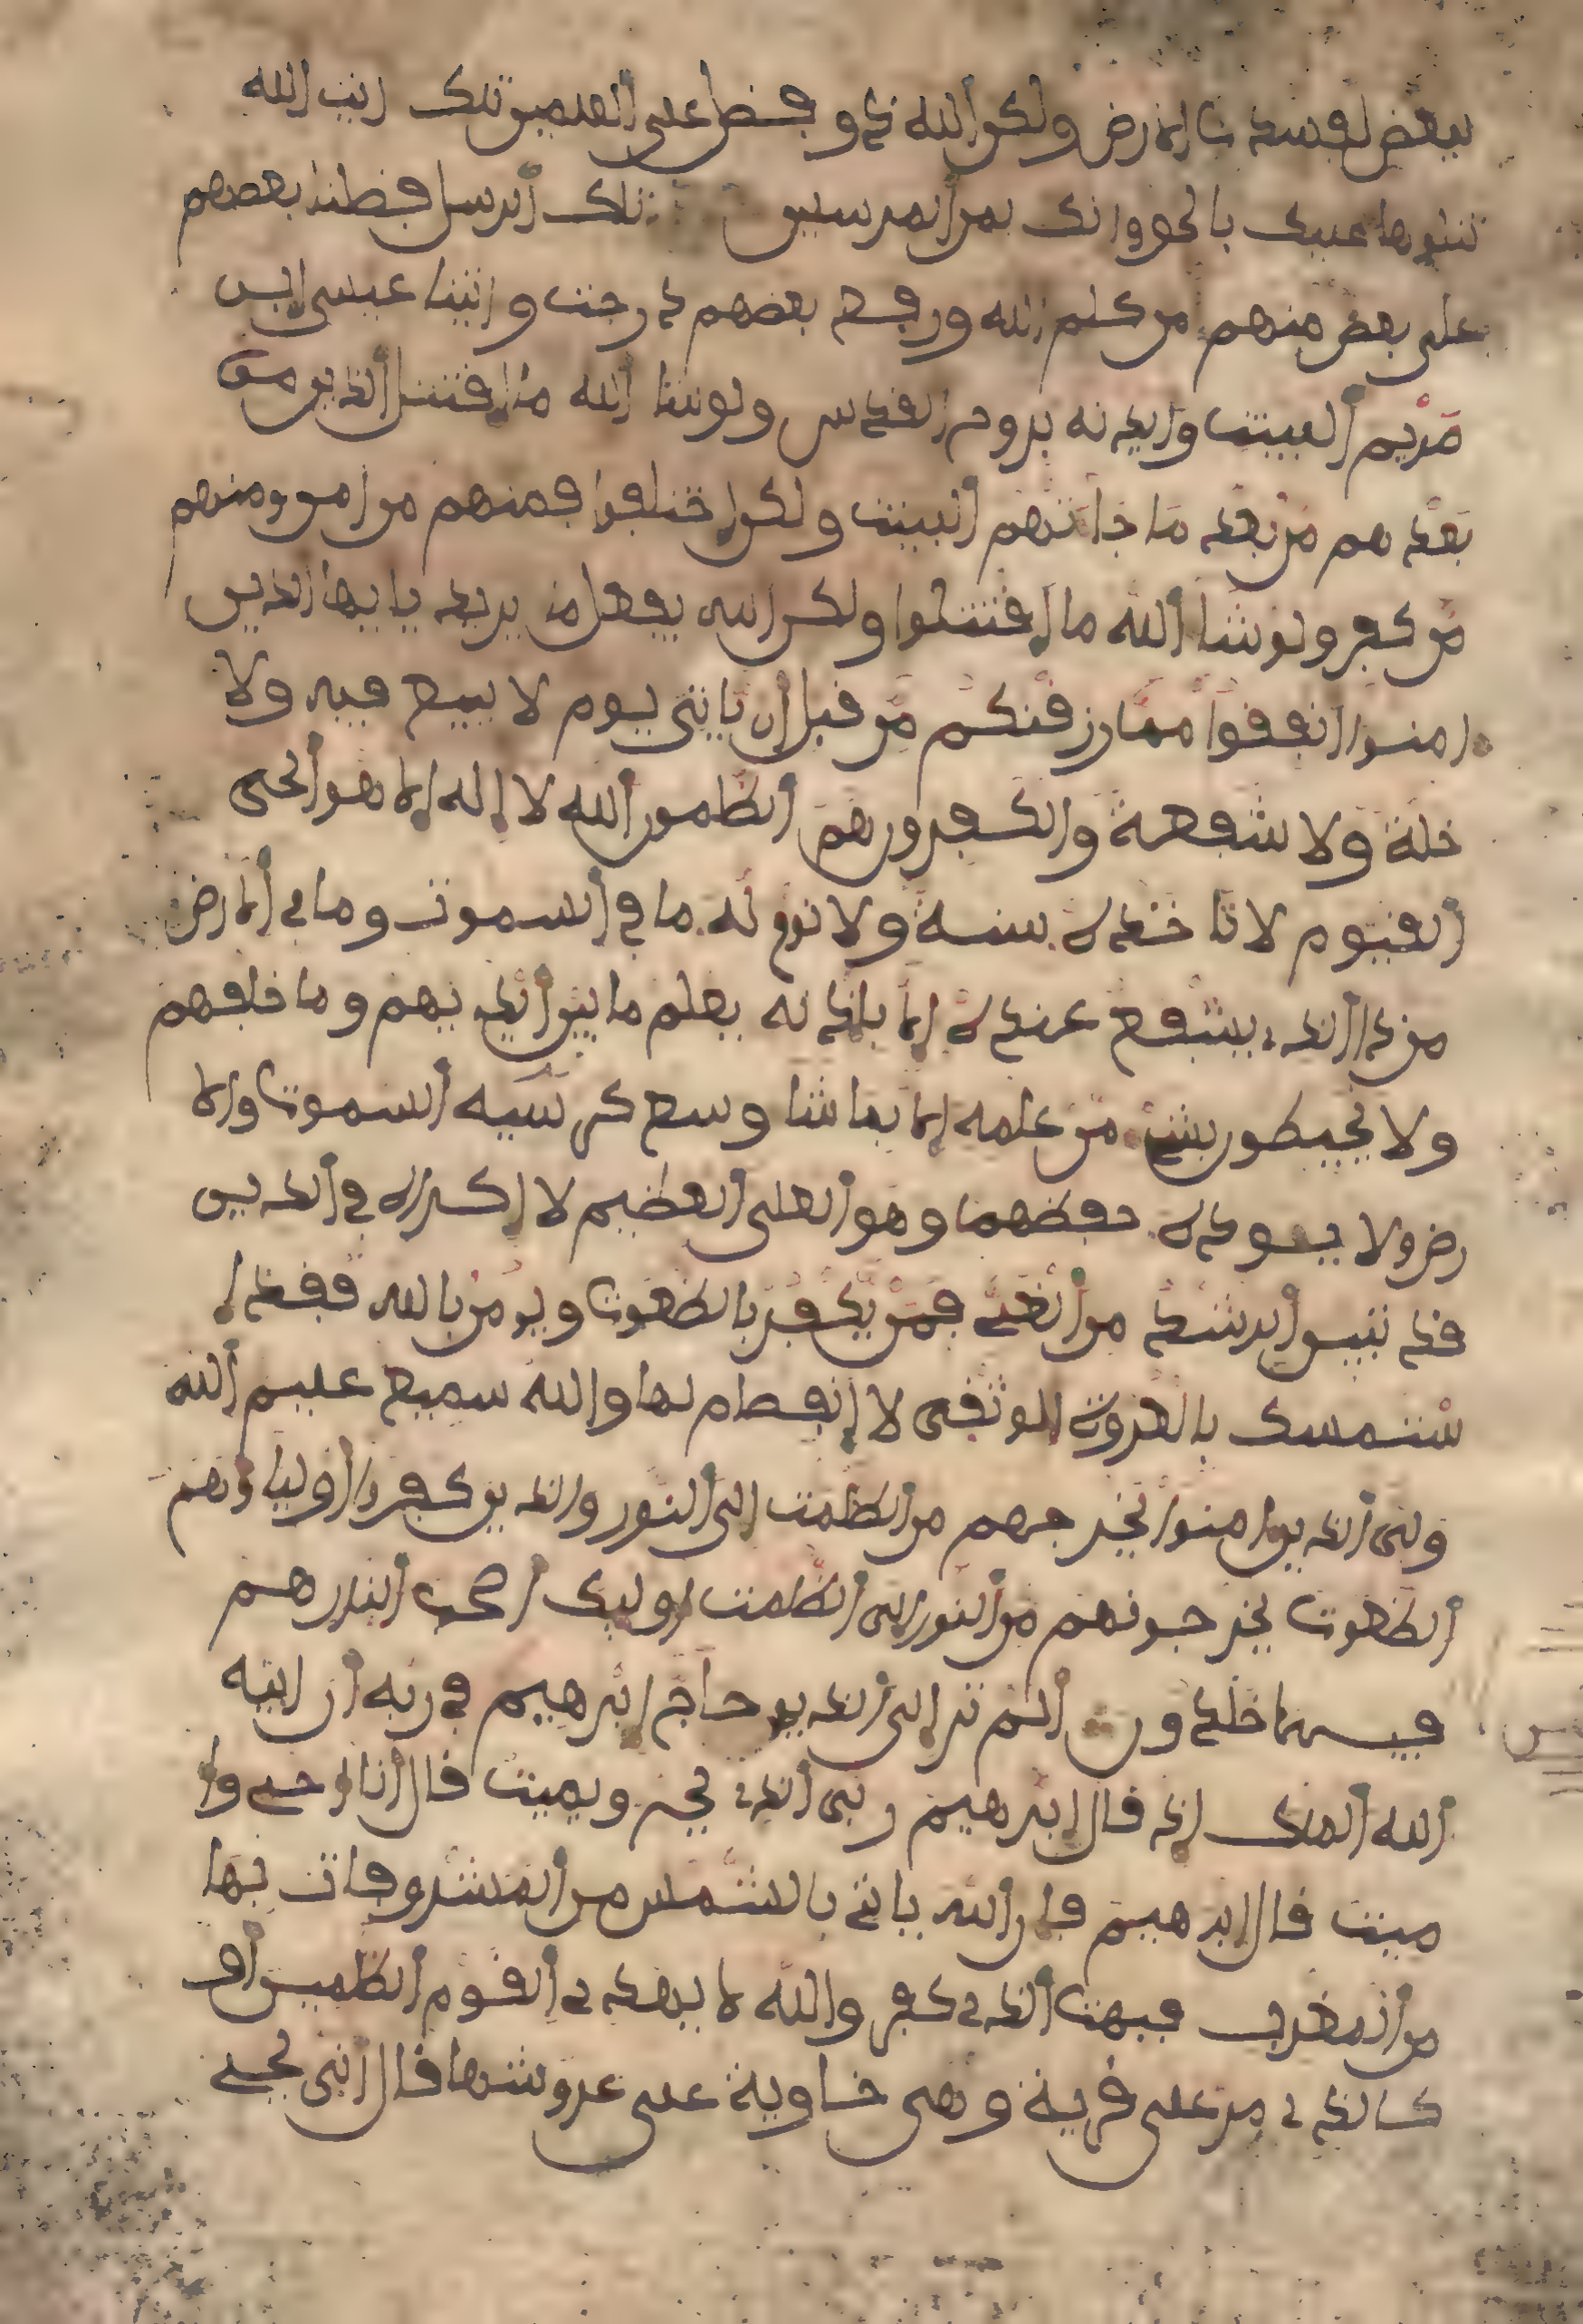 ببعض لفسدت الارض ولكن الله ذو فضل على العلمين تلك ايت الله
نتلوها عليك بالحق وانك لمن المرسلين تلك الرسل فضلنا بعضهم
على بعض منهم من كلم الله ورفع بعضهم درجت واتينا عيسى ابن
مريم البينت وايدنه بروح القدس ولو شا الله ما اقتتل الذين من
بعدهم من بعد ما جاتهم البينت ولكن اختلفوا فمنهم من امن ومنهم
من كفر ولو شا الله ما اقتتلوا ولكن الله يفعل ما يريد يايها الذين
امنوا انفقوا مما رزقنكم من قبل ان ياتي يوم لا بيع فيه ولا
خلة ولا شفعة والكفرون هم الظلمون الله لا اله الا هو الحي
القيوم لا تاخذه سنة ولا نوم له ما في السموت وما في الارض
من ذا الذي يشفع عنده الا باذنه يعلم ما بين ايديهم وما خلفهم
ولا يحيطون بشي من علمه الا بما شا وسع كرسيه السموت والا
رض ولا يـوده حفظهما وهو العلي العظيم لا اكراه في الدين
قد تبين الرشد من الغي فمن يكفر بالطغوت ويومن بالله فقد ا
ستمسك بالعروة الوثقى لا انفصام لها والله سميع عليم الله
ولي الذين امنوا يخرجهم من الظلمت الى النور والذين كفروا اولياوهم
الطغوت يخرجونهم من النور الى الظلمت اوليك اصحب النار هم
فيها خلدون الم تر الى الذي حاج ابرهيم في ربه ان اتيه
الله الملك اذ قال ابرهيم ربي الذي يحي ويميت قال انا احي وا
ميت قال ابرهيم فان الله ياتي بالشمس من المشرق فات بها
من المغرب فبهت الذي كفر والله لا يهدي القوم الظلمين او
كالذي مر على قرية وهي خاوية على عروشها قال انى يحي